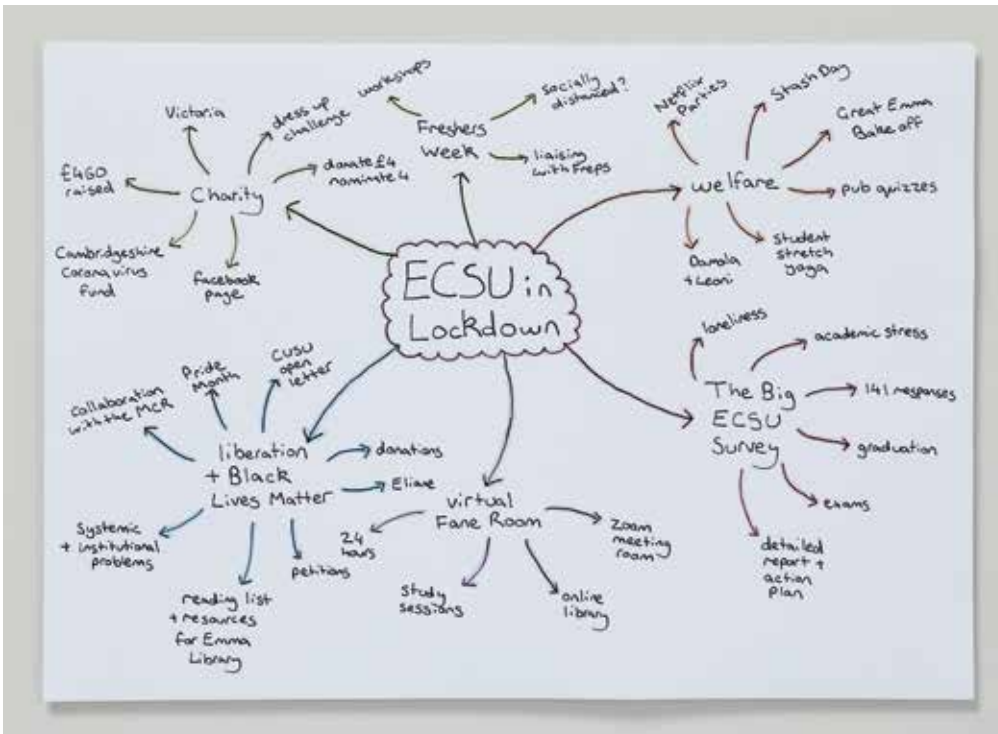 ECSU in
Lockdown
Charity
Victoria
dress up
challenge
donate £4
nominate 4
£460
raised
Cambridgeshire
Coronavirus
fund
facebook
page
Freshers
Week
workshops
socially
distanced?
liaising
with Freps
welfare
Netflix
Parties
Stash Day
Great Emma
Bake off
pub quizzes
student
stretch
yoga
Damola
+ Leoni
The Big
ECSU
Survey
loneliness
academic stress
141 responses
graduation
exams
detailed
report +
action
plan
virtual
Fane Room
24
hours
study
sessions
online
library
zoom
meeting
room
liberation
+ Black
Lives Matter
collaboration
with the MCR
Pride
Month
CUSU
open
letter
donations
Eliane
petitions
reading list
+ resources
for Emma
Library
Systemic
+ institutional
problems